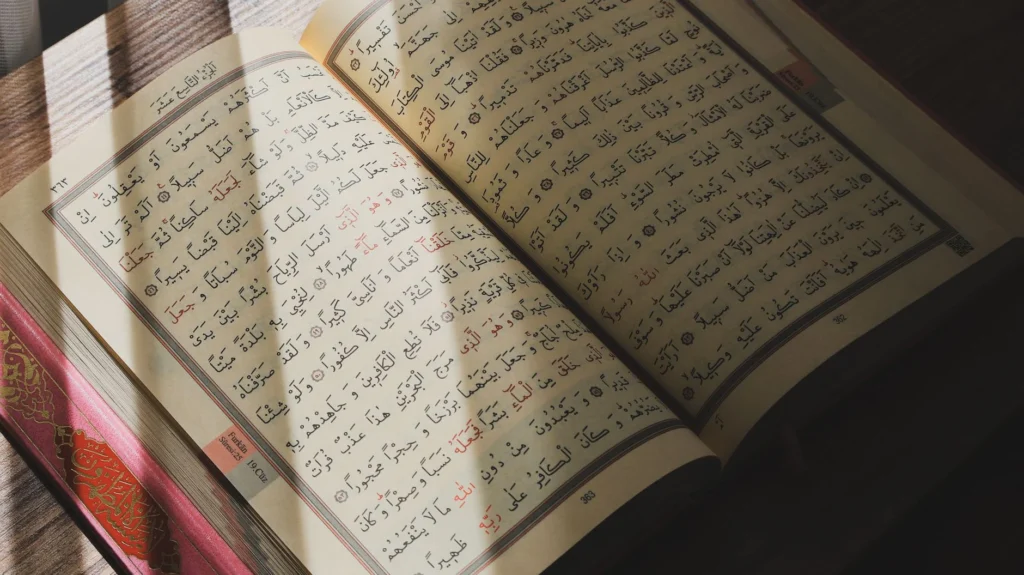 اَحْسَنَ تَفْسِيرًا
جَهَنَّمَ
سَبِيلًا وَلَقَدْ اٰتَيْنَا مُوسَى الْكِتَابَ
هٰرُونَ وَزِيرًا فَقُلْنَا اذْهَبَا اِلَى الْقَوْمِ
الَّذِينَ كَذَّبُوا بِاٰيَاتِنَا فَدَمَّرْنَاهُمْ تَدْمِيرًا وَقَوْمَ
نُوحٍ لَمَّا كَذَّبُوا الرُّسُلَ اَغْرَقْنَاهُمْ وَجَعَلْنَاهُمْ لِلنَّاسِ
اٰيَةً وَاَعْتَدْنَا لِلظَّالِمِينَ عَذَابًا اَلِيمًا وَعَادًا وَثَمُودَا
وَاَصْحَابَ الرَّسِّ وَقُرُونًا بَيْنَ ذٰلِكَ كَثِيرًا وَكُلًّا
ضَرَبْنَا لَهُ الْاَمْثَالَ وَكُلًّا تَبَّرْنَا تَتْبِيرًا وَلَقَدْ اَتَوْا
عَلَى الْقَرْيَةِ الَّتِي اُمْطِرَتْ مَطَرَ السَّوْءِ اَفَلَمْ يَكُونُوا
يَرَوْنَهَا بَلْ كَانُوا لَا يَرْجُونَ نُشُورًا وَاِذَا رَاَوْكَ
اِنْ يَتَّخِذُونَكَ اِلَّا هُزُوًا اَهٰذَا الَّذِي بَعَثَ اللّٰهُ رَسُولًا
اِنْ كَادَ لَيُضِلُّنَا عَنْ اٰلِهَتِنَا لَوْلَا اَنْ صَبَرْنَا عَلَيْهَا وَسَوْفَ
يَعْلَمُونَ حِينَ يَرَوْنَ الْعَذَابَ مَنْ اَضَلُّ سَبِيلًا اَرَاَيْتَ
مَنِ اتَّخَذَ اِلٰهَهُ هَوٰيهُ اَفَاَنْتَ تَكُونُ عَلَيْهِ وَكِيلًا
362
اَلْجُزْءُ التَّاسِعَ عَشَرَ
٣٦٣
اَنَّ اَكْثَرَهُمْ يَسْمَعُونَ اَوْ يَعْقِلُونَ اِنْ
كَالْاَنْعَامِ بَلْ هُمْ اَضَلُّ سَبِيلًا اَلَمْ تَرَ اِلٰى
كَيْفَ مَدَّ الظِّلَّ وَلَوْ شَاءَ لَجَعَلَهُ سَاكِنًا ثُمَّ جَعَلْنَا
عَلَيْهِ دَلِيلًا ثُمَّ قَبَضْنَاهُ اِلَيْنَا قَبْضًا يَسِيرًا
جَعَلَ لَكُمُ الَّيْلَ لِبَاسًا وَالنَّوْمَ سُبَاتًا وَجَعَلَ
وَهُوَ الَّذِي اَرْسَلَ الرِّيَاحَ بُشْرًا بَيْنَ يَدَىْ
السَّمَاءِ مَاءً طَهُورًا لِنُحْيِيَ بِهِ بَلْدَةً مَيْتًا
خَلَقْنَا اَنْعَامًا وَاَنَاسِيَّ كَثِيرًا وَلَقَدْ صَرَّفْنَاهُ
لِيَذَّكَّرُوا فَاَبٰى اَكْثَرُ النَّاسِ اِلَّا كُفُورًا وَلَوْ شِئْنَا
كُلِّ قَرْيَةٍ نَذِيرًا فَلَا تُطِعِ الْكَافِرِينَ وَجَاهِدْهُمْ بِهِ
وَهُوَ الَّذِي مَرَجَ الْبَحْرَيْنِ هٰذَا عَذْبٌ فُرَاتٌ
مِلْحٌ اُجَاجٌ وَجَعَلَ بَيْنَهُمَا بَرْزَخًا وَحِجْرًا مَحْجُورًا
الَّذِي خَلَقَ مِنَ الْمَاءِ بَشَرًا فَجَعَلَهُ نَسَبًا وَصِهْرًا وَكَانَ
قَدِيرًا وَيَعْبُدُونَ مِنْ دُونِ اللّٰهِ مَا لَا يَنْفَعُهُمْ
يَضُرُّهُمْ وَكَانَ الْكَافِرُ عَلٰى رَبِّهِ ظَهِيرًا
Furkân
Sûresi 25
19.Cüz
363